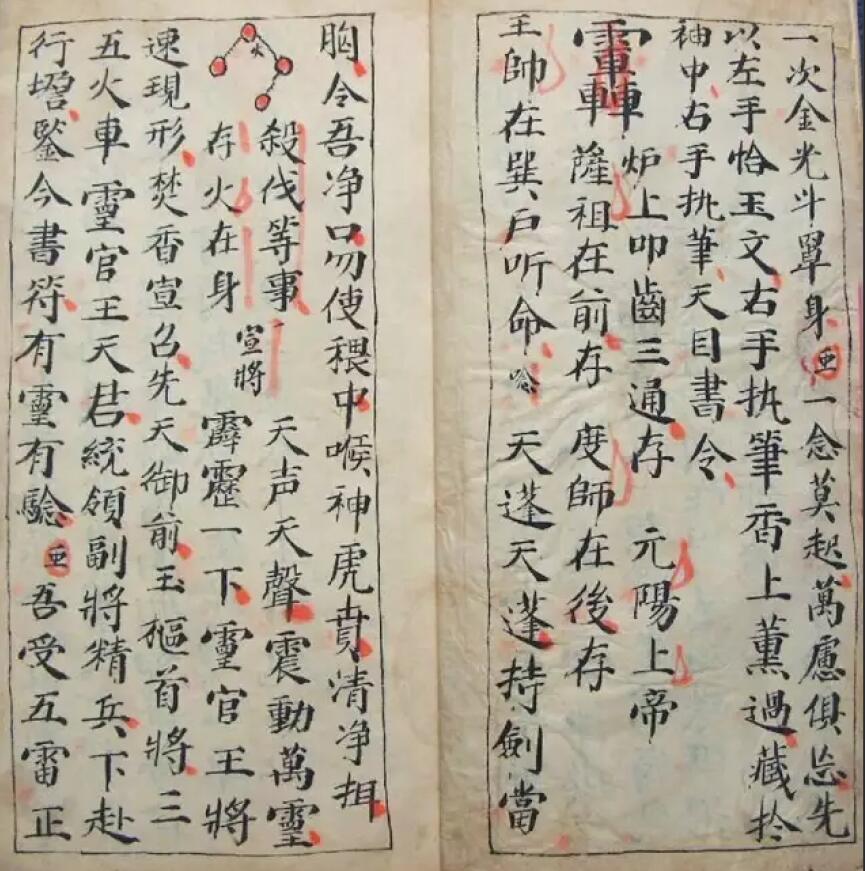 一次金光斗罩身一念莫起萬慮俱忘先
以左手恰玉文右手执筆香上薰過藏扵
袖中右手执筆天目書令
炉上叩齒三通存 元陽上帝
薩祖在前存 度師在後存
王帥在巽户听命唸 天蓬天蓬持劍當
胸令吾净口勿使穢中喉神虎賁清净
火
殺伐等事 天声天聲震動萬靈
存火在身 宣將 霹靂一下靈官王將
速現形焚香宣召先天御前玉樞首將三
五火車靈官王天君統領副將精兵下赴
行壇鑒今書符有靈有驗吾受五雷正